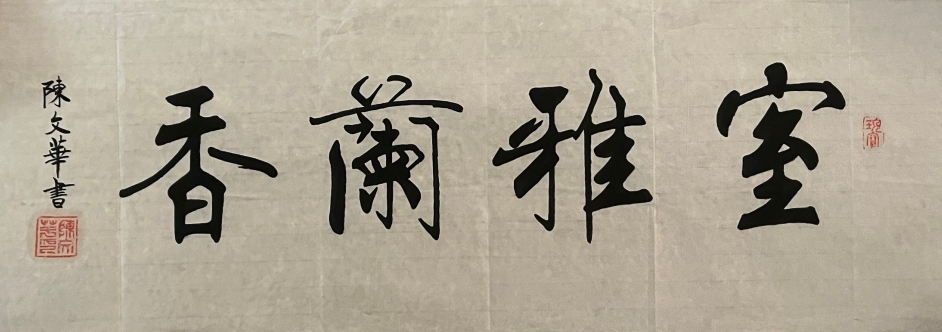 室雅蘭香
陳文華書